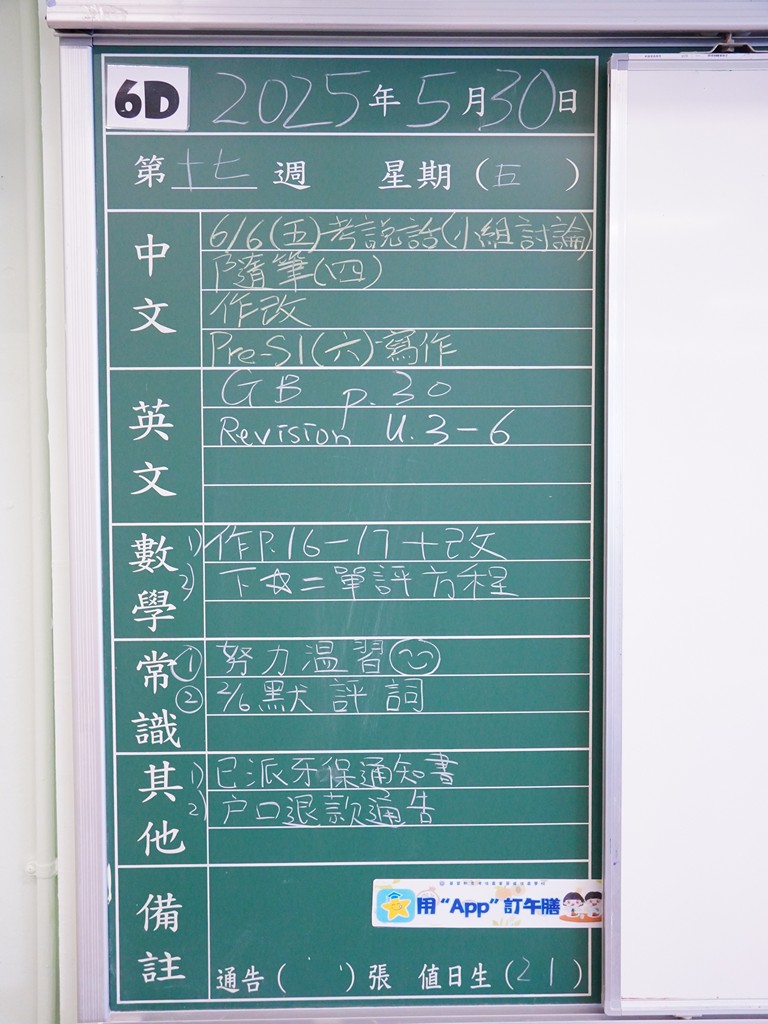 6D 2025年5月30日
第十七週 星期(五)
中文
6/6(五)考說話(小組討論)
隨筆(四)
作改
Pre-S1(六)-寫作
英文
GB p.30
Revision U.3-6
數學
1) 作P.16-17+改
2) 下
二單評方程
常識
① 努力温習
② 2/6默評詞
其他
1) 已派牙保通知書
2) 户口退款通告
備註
用“App”訂午膳
通告( )張 值日生(21)